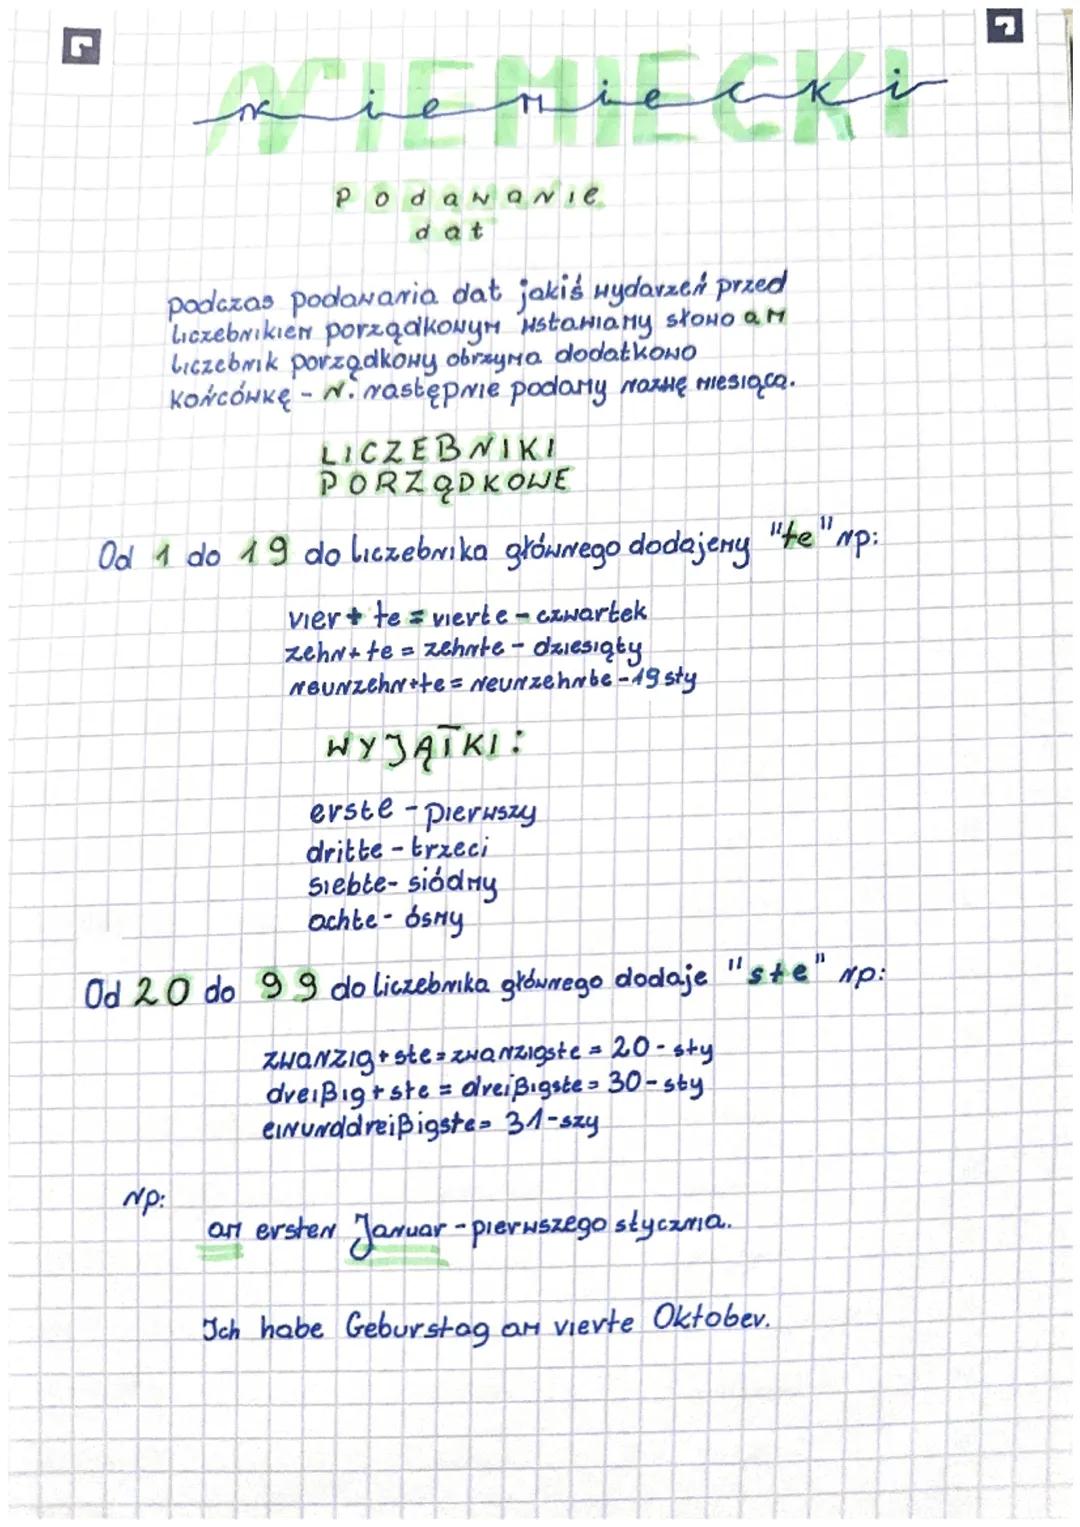 NIEMIECKI
niemiecki
Podawanie
dat
podczas podawania dat jakiś wydarzeń przed
liczebnikiem porządkowym wstawiamy słowo am
liczebnik porządkowy otrzyma dodatkowo
końcówkę - N. następnie podamy nazwę miesiąca.
LICZEBNIKI
PORZĄDKOWE
Od 1 do 19 do liczebnika głównego dodajemy "te" np:
vier + te = vierte - czwartek
zehn + te = zehnte - dziesiąty
neunzehn+te = neunzehnte - 19 sty
WYJĄTKI:
erste - pierwszy
dritte - trzeci
siebte - siódmy
achte - ósmy
Od 20 do 99 do liczebnika głównego dodaje "ste" np:
zwanzig + ste = zwanzigste = 20 - sty
dreißig + ste = dreißigste = 30 - sty
einunddreißigste = 31-szy
Np:
am ersten Januar - pierwszego stycznia.
Ich habe Geburstag am vierte Oktober.